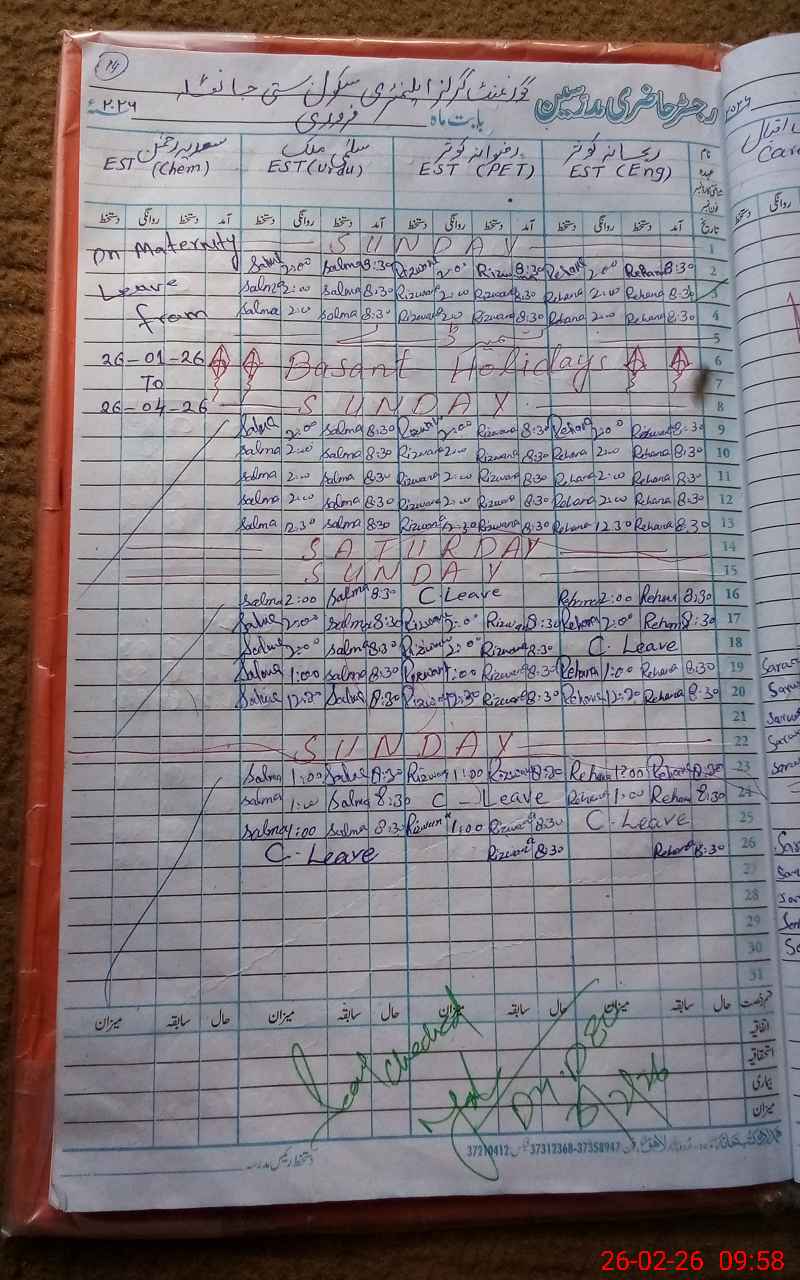 14
رجسٹر حاضری مدرسین گورنمنٹ گرلز ایلیمنٹری سکول بستی
بابت ماہ فروری ۲۰۲۶ء
نام ریحانہ کوثر رضوانہ کوثر سلمیٰ ملک سعدیہ رحمٰن
عہدہ EST (Eng) EST (PET) EST (Urdu) EST (Chem)
تاریخ آمد دستخط روانگی دستخط آمد دستخط روانگی دستخط آمد دستخط روانگی دستخط آمد دستخط روانگی دستخط
On Maternity SUNDAY 1
Salma 2:00 Salma 8:30 Rizwana 2:00 Rizwana 8:30 Rehana 2:00 Rehana 8:30 2
Leave Salma 2:00 Salma 8:30 Rizwana 2:00 Rizwana 8:30 Rehana 2:00 Rehana 8:30 3
from Salma 2:00 Salma 8:30 Rizwana 2:00 Rizwana 8:30 Rehana 2:00 Rehana 8:30 4
5
26-01-26 Basant Holidays 6
To 7
26-04-26 SUNDAY 8
Salma 2:00 Salma 8:30 Rizwana 2:00 Rizwana 8:30 Rehana 2:00 8:30 9
Salma 2:00 Salma 8:30 Rizwana 2:00 Rizwana 8:30 Rehana 2:00 Rehana 8:30 10
Salma 2:00 Salma 8:30 Rizwana 2:00 Rizwana 8:30 Rehana 2:00 Rehana 8:30 11
Salma 2:00 Salma 8:30 Rizwana 2:00 Rizwana 8:30 Rehana 2:00 Rehana 8:30 12
Salma 12:30 Salma 8:30 Rizwana 12:30 Rizwana 8:30 Rehana 12:30 Rehana 8:30 13
SATURDAY 14
SUNDAY 15
Salma 2:00 Salma 8:30 C Leave Rehana 2:00 Rehana 8:30 16
Salma 2:00 Salma 8:30 Rizwana 2:00 Rizwana 8:30 Rehana 2:00 Rehana 8:30 17
Salma 2:00 Salma 8:30 Rizwana 2:00 Rizwana 8:30 C. Leave 18
Salma 1:00 Salma 8:30 Rizwana 1:00 Rizwana 8:30 Rehana 1:00 Rehana 8:30 19
Salma 12:30 Salma 8:30 Rizwana 12:30 Rizwana 8:30 Rehana 12:30 Rehana 8:30 20
21
SUNDAY 22
Salma 1:00 Salma 8:30 Rizwana 1:00 Rizwana 8:30 Rehana 1:00 Rehana 8:30 23
Salma 1:00 Salma 8:30 C - Leave Rehana 1:00 Rehana 8:30 24
Salma 1:00 Salma 8:30 Rizwana 1:00 Rizwana 8:30 C. Leave 25
C-Leave Rizwana 8:30 Rehana 8:30 26
27
28
29
30
31
قسم رخصت حال سابقہ میزان حال سابقہ میزان حال سابقہ میزان حال سابقہ میزان
اتفاقیہ
استحقاقیہ
بیماری
میزان
checked
دستخط رئیس مدرسہ
37210412 37312368-37358947
26-02-26 09:58